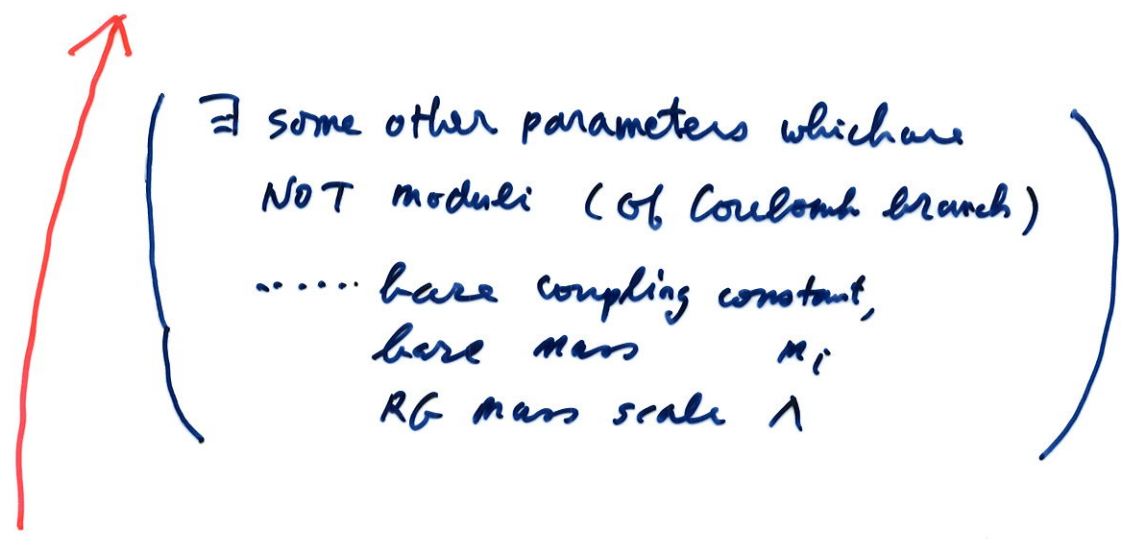 ( ∃ some other parameters which are
NOT moduli (of Coulomb branch)
...... bare coupling constant,
bare mass mᵢ
RG mass scale Λ )